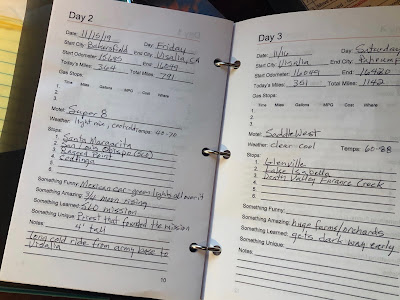 Day 2
Date: 11/15/19 Day: Friday
Start City: Bakersfield End City: Visalia, CA
Start Odometer: 15685 End: 16049
Today's Miles: 364 Total Miles: 791
Gas Stops:
Time Miles Gallons MPG Cost Where
1.
2.
3.
Motel: Super 8
Weather: light rise, Temps: 40-70
Stops:
1. Santa Margarita
2. San Luis Obispo (SLO)
3. Ragged Point
4. Coalinga
5.
6.
Something Funny: Mexican car-green lights all over it
Something Amazing: 3/4 moon rising
Something Learned: SLO mission
Something Unique: Priest that founded the mission
Notes: 4' tall
Long cold ride from army base to
Visalia
10
Day 3
Date: 11/16 Day: Saturday
Start City: Visalia End City: Pahrump
Start Odometer: 16049 End: 16400
Today's Miles: 351 Total Miles: 1142
Gas Stops:
Time Miles Gallons MPG Cost Where
1.
2.
3.
Motel: Saddle West
Weather: clear-cool Temps: 60-88
Stops:
1. Glenville
2. Lake Isabella
3. Death Valley Entrance Creek
4.
5.
6.
Something Funny:
Something Amazing: huge farms/orchards
Something Learned: gets dark way early
Something Unique:
Notes: